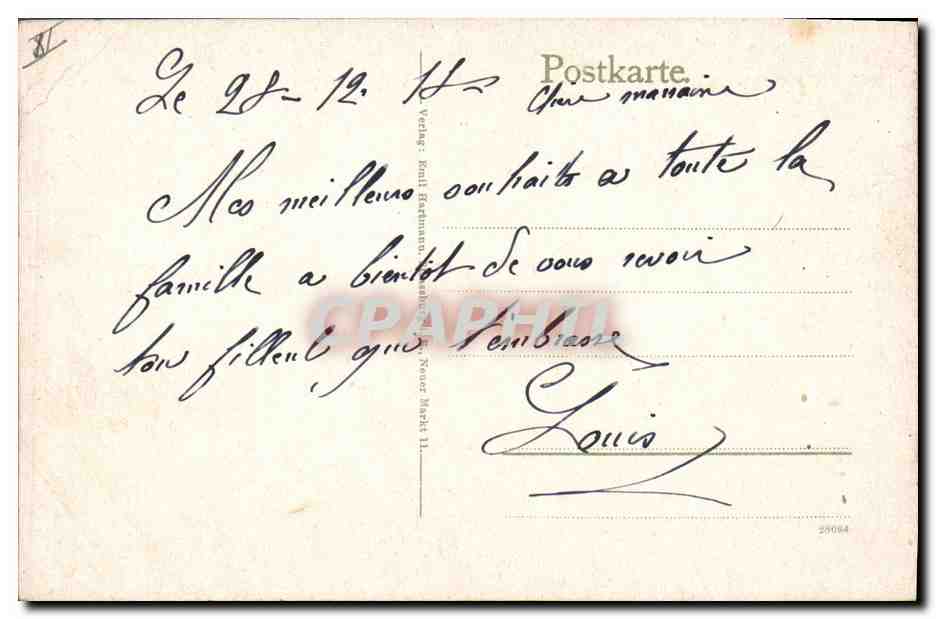 Postkarte.
Le 28 - 12. 18
Chère marraine
Mes meilleurs souhaits a toute la
famille a bientôt de vous revoir
ton filleul, qui t'embrasse
Louis
Verlag: Emil Hartmann, Neuer Markt 11.
CPAPHIL
28094